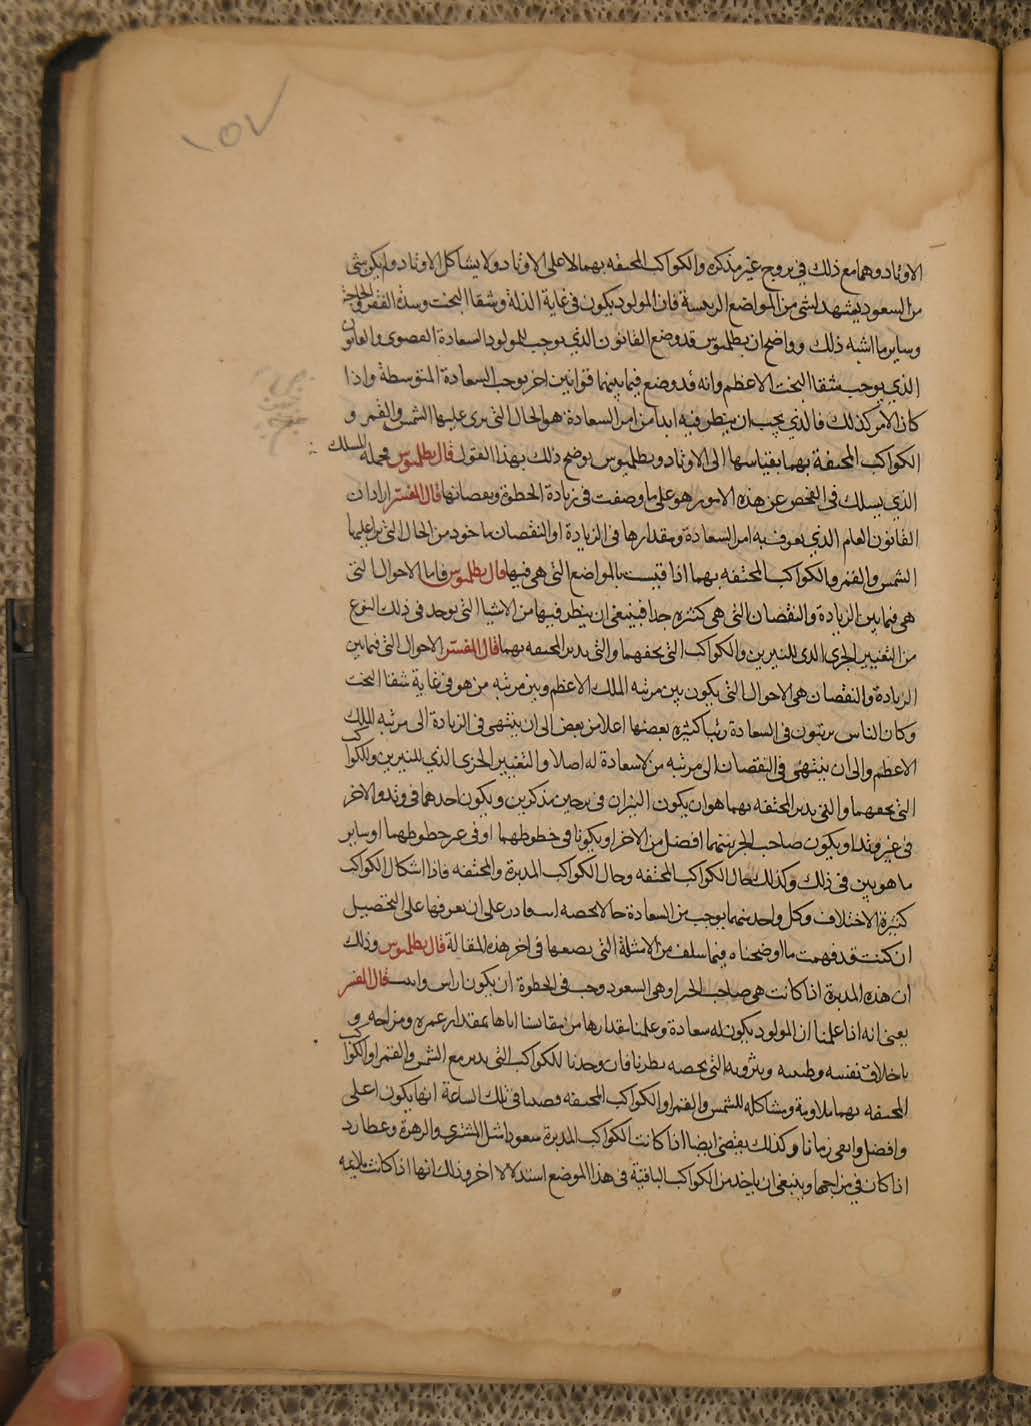 ١٥٧
الاوتاد وهما مع ذلك في بروج غير مذكره والكواكب المحتفه بهما لا على الاوتاد ولا يشاكل الاوتاد ولم يكن شي
من السعود يشهد لشي من المواضع الرييسة فان المولود يكون في غاية الذلة وشقا البخت وسدة الفقر والحاجة
وساير ما اشبه ذلك وواضح ان بطلميوس قد وضع القانون الذي يوجب للمولود السعادة القصوى والقانون
الذي يوجب شقا البخت الاعظم وانه قد وضع فيما بينهما قوانين اخر يوجب السعادة المتوسطة واذا
كان الأمر كذلك فالذي يجب ان ينظر فيه ابدا من امر السعادة هو الحال التي يرى عليها الشمس والقمر و
الكواكب المحتفة بهما بقياسها الى الاوتاد وبطلميوس يوضح ذلك بهذا القول قال بطلميوس فجمله المسلك
الذي يسلك في الفحص عن هذه الامور هو على ما وصفت في زيادة الحظوة ونقصانها قال المفسر اراد ان
القانون العام الذي نعرف به امر السعادة ومقدارها في الزيادة او النقصان ماخود من الحال التي يرا عليها
الشمس والقمر والكواكب المحتفه بهما اذا قيست بالمواضع التي هي فيها قال بطلميوس فاما الاحوال التي
هي فيما بين الزيادة والنقصان التي هي كثيره جدا فينبغي ان ينظر فيها من الاشيا التي توجد في ذلك النوع
من التغيير الجزي الذي للنيرين والكواكب التي يحفهما والتي يدبر المحتفه بهما قال المفسر الاحوال التي فيما بين
الزيادة والنقصان هي الاحوال التي يكون بين مرتبه الملك الاعظم وبين مرتبه من هو في غاية شقا البخت
وكان الناس يرتبون في السعادة رتبا كثيره بعضها اعلا من بعض الى ان ينتهي في الزيادة الى مرتبه الملك
الاعظم والى ان ينتهي في النقصان الى مرتبه من لا سعادة له اصلا والتغيير الجزي الذي للنيرين والكواكب
التي يحفهما والتي يدبر المحتفه بهما هو ان يكون النيران في برجين مذكرين ويكون احدهما في وتد والاخر
في غير وتد او يكون صاحب الحيز منهما افضل من الاخر او يكونا في حظوظهما او في غير حظوظهما او ساير
ما هو بين في ذلك وكذلك حال الكواكب المحتفه وحال الكواكب المدبرة والمحتفه فاذا اشكال الكواكب
كثيرة الاختلاف وكل واحد منهما يوجب من السعادة حالا يخصه على ان نعرفها على التحصيل
ان كنت قد فهمت ما اوضحناه فيما سلف من الامثلة التي نضعها في اخر هذه المقالة قال بطلميوس وذلك
ان هذه المدبرة اذا كانت هي صاحب الحيز او هي السعود وجب في الحظوة ان يكون قال المفسر
يعني انه اذا علمنا ان المولود يكون له سعادة وعلمنا مقدارها من مقايستنا اياها بمقدار عمره ومزاجه و
باخلاق نفسه وتربيته التي يخصه نظرنا فان وجدنا للكواكب التي يدبر مع الشمس والقمر او الكواكب
المحتفه بهما ملاومة ومشاكله للشمس والقمر او الكواكب المحتفه في تلك الساعة انها يكون اعلى
وافضل وابقى زمانا وكذلك يقضي ايضا اذا كانت الكواكب المدبرة سعودا مثل المشتري والزهرة وعطارد
اذا كان في مزاجها وينبغي ان ياخذ من الكواكب الباقية في هذا الموضع استدلالا اخر وذلك انها اذا كانت ملايمه